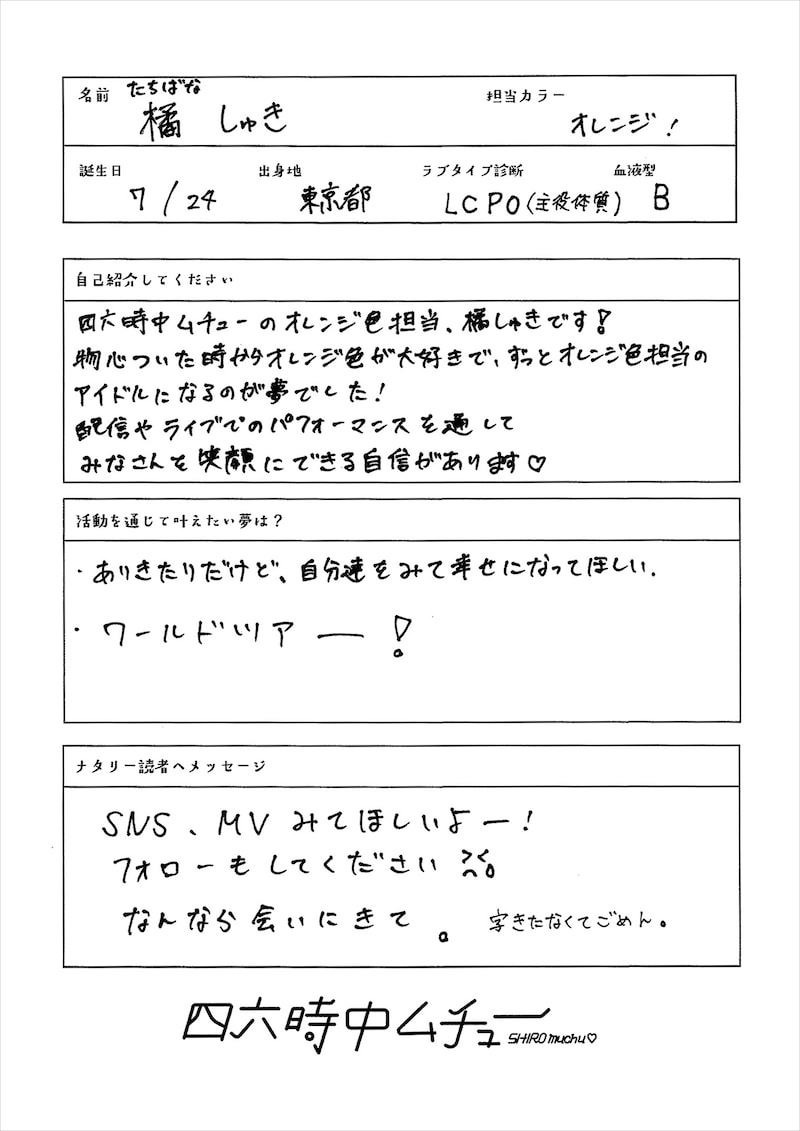 名前 たちばな 担当カラー
橘 しゅき オレンジ!
誕生日 出身地 ラブタイプ診断 血液型
7/24 東京都 LCPO(主役体質) B
自己紹介してください
四六時中ムチューのオレンジ色担当、橘しゅきです!
物心ついた時からオレンジ色が大好きで、ずっとオレンジ色担当の
アイドルになるのが夢でした!
配信やライブでのパフォーマンスを通して
みなさんを笑顔にできる自信があります♡
活動を通じて叶えたい夢は?
・ありきたりだけど、自分達をみて幸せになってほしい.
・ワールドツアー!
ナタリー読者へメッセージ
SNS、MVみてほしいよー!
フォローもしてください
なんなら会いにきて。 字きたなくてごめん。
四六時中ムチュー SHIROmuchu♡